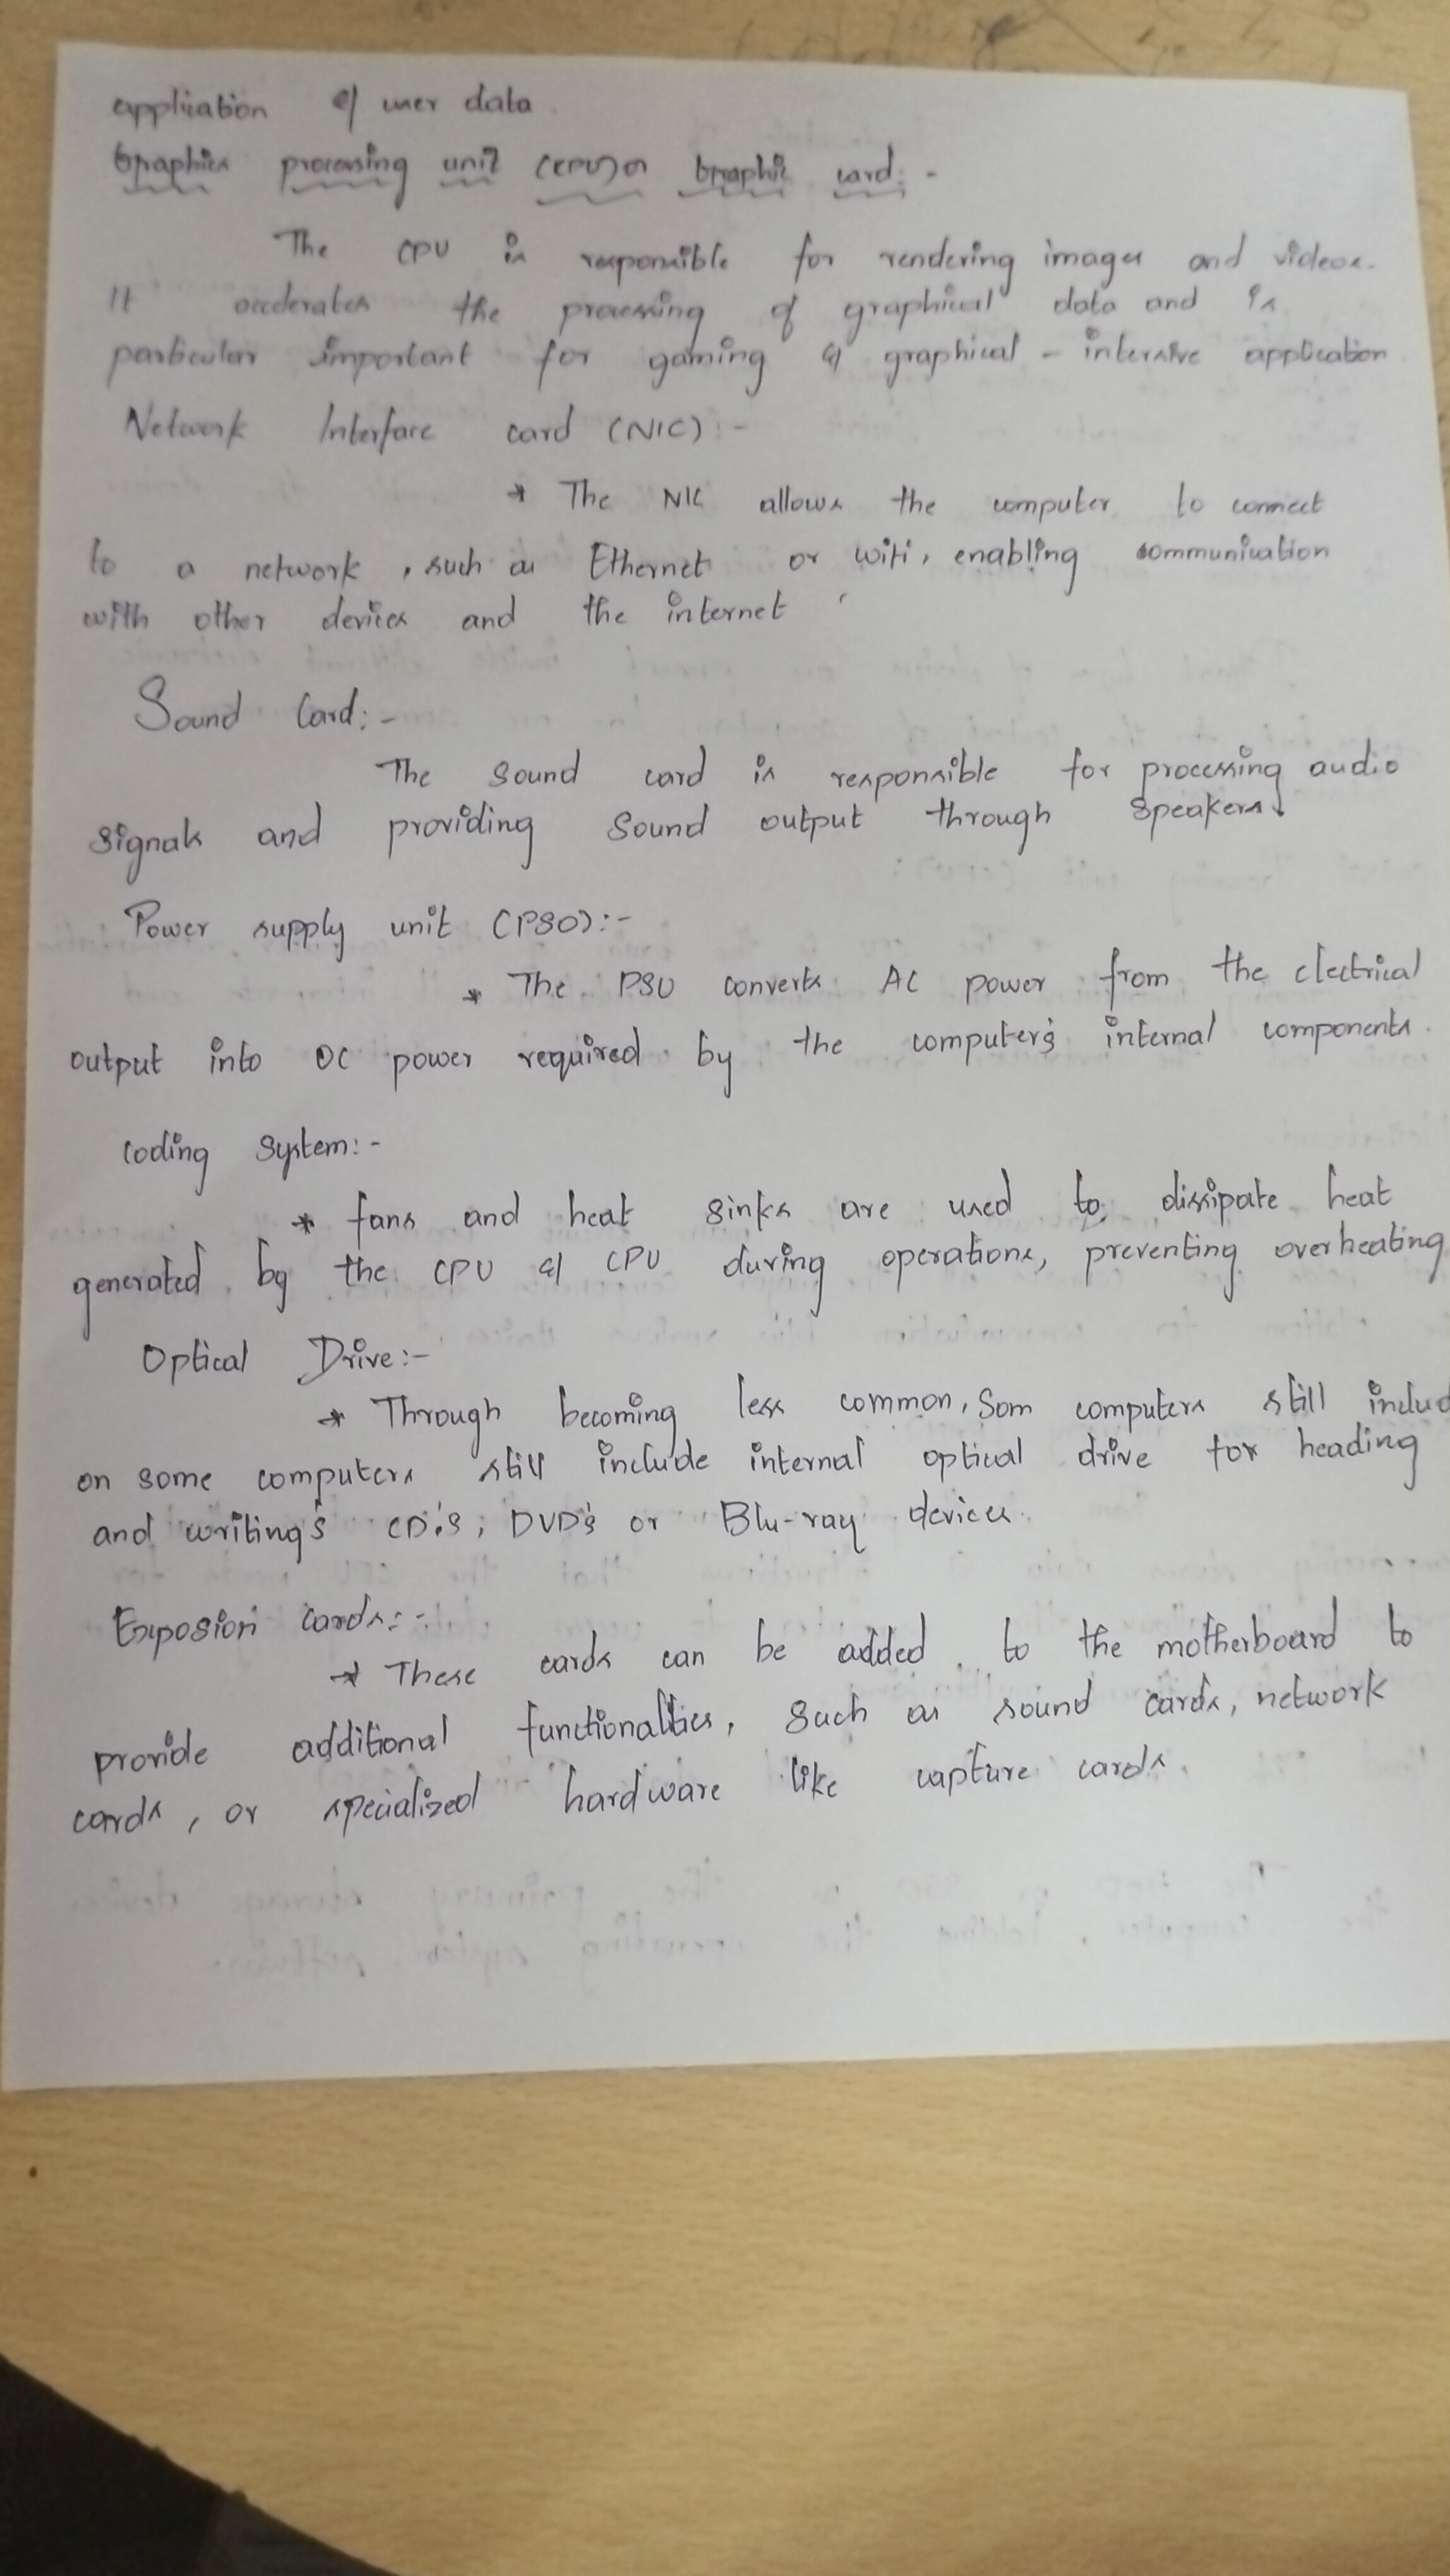 application & user data
Graphics processing unit (GPU) or Graphic card: -
The CPU is responsible for rendering images and videos.
It accelerates the processing of graphical data and is
particular important for gaming & graphical - intensive application
Network Interface card (NIC) : -
* The NIC allows the computer to connect
to a network, such as Ethernet or wifi, enabling communication
with other devices and the internet
Sound Card: -
The sound card is responsible for processing audio
signals and providing sound output through speakers.
Power supply unit (PSU):-
* The PSU converts AC power from the electrical
output into DC power required by the computer's internal components.
Cooling system: -
* fans and heat sinks are used to dissipate heat
generated by the CPU & CPU during operations, preventing overheating
Optical Drive:-
* Through becoming less common, Som computers still includ
on some computers still include internal optical drive for heading
and writing's CD's, DVD's or Blu-ray devices.
Exposion cards: -
* These cards can be added to the motherboard to
provide additional functionalties, such as sound cards, network
cards, or specialized hardware like capture cards.